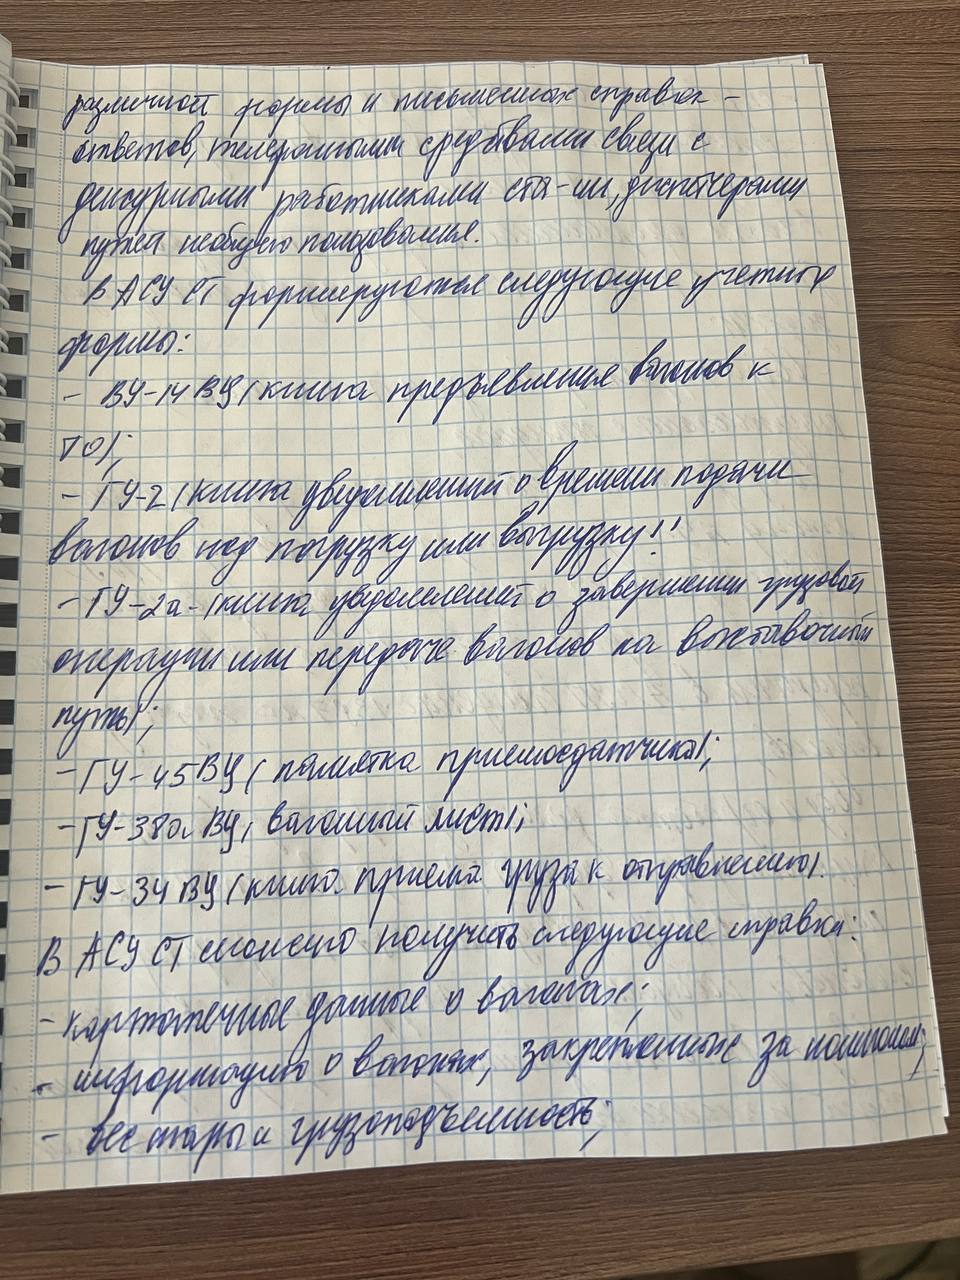 различной формы и письменных справок -
ответов, телефонными средствами связи с
дежурными работниками ста-ии, диспетчерами
путей необщего пользования.
В АСУ СТ формируются следующие учетные
формы:
- ВУ-14 ВЦ (книга предъявления вагонов к
ТО);
- ГУ-2 (книга уведомлений о времени подачи
вагонов под погрузку или выгрузку);
- ГУ-2а - (книга уведомлений о завершении грузовой
операции или передаче вагонов на выставочный
путь);
- ГУ-45 ВЦ (памятка приемосдатчика);
- ГУ-38а ВЦ (вагонный лист);
- ГУ-34 ВЦ (книга приема груза к отправлению).
В АСУ СТ можно получить следующие справки:
- картотечные данные о вагонах;
- информацию о вагонах, закрепленных за
- вес тары и грузоподъемность;